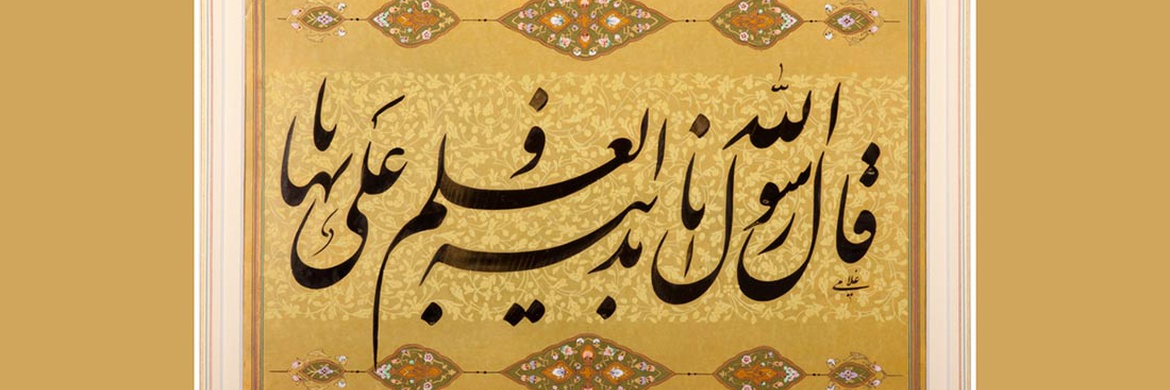 قال رسول الله انا مدینة العلم و علی بابها
غلامی